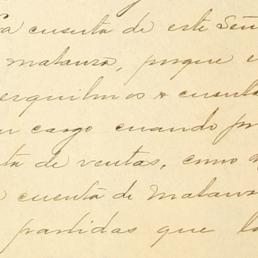 la cuenta de este Señ
matanza, porque e
esquilmos & cuenta
cargo cuando pr
ta de ventas, como
cuenta de Matanz
partidas que la